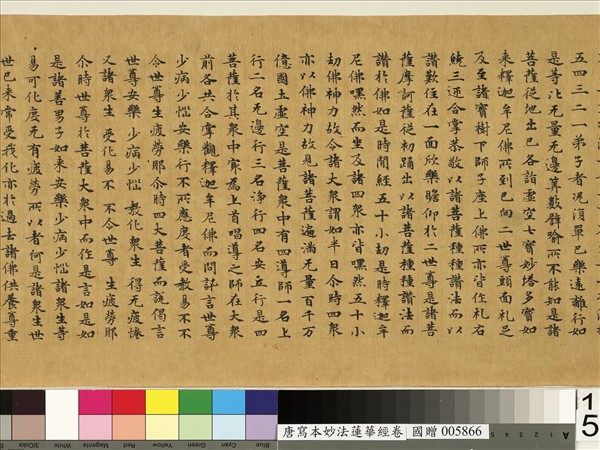 五四三二一弟子者况復單己樂遠離行如
是等比无量无邊筭數譬喻所不能知是諸
菩薩從地出已各詣虛空七寶妙塔多寶如
來釋迦牟尼佛所到已向二世尊頭面礼足
及至諸寶樹下師子座上佛所亦皆作礼右
繞三迊合掌恭敬以諸菩薩種種讚法而以
讚歎住在一面欣樂瞻仰於二世尊是諸菩
薩摩訶薩從初踊出以諸菩薩種種讚法而
讚於佛如是時間經五十小劫是時釋迦牟
尼佛嘿然而坐及諸四衆亦皆嘿然五十小
劫佛神力故令諸大衆謂如半日尒時四衆
亦以佛神力故見諸菩薩遍滿无量百千万
億國土虛空是菩薩衆中有四導師一名上
行二名无邊行三名淨行四名安立行是四
菩薩於其衆中㝡為上首唱導之師在大衆
前各共合掌觀釋迦牟尼佛而問訊言世尊
少病少惱安樂行不所應度者受教易不不
令世尊生疲勞耶尒時四大菩薩而說偈言
世尊安樂 少病少惱 教化衆生 得无疲惓
又諸衆生 受化易不 不令世尊 生疲勞耶
尒時世尊於菩薩大衆中而作是言如是如
是諸善男子如來安樂少病少惱諸衆生等
易可化度无有疲勞所以者何是諸衆生世
世已來常受我化亦於過去諸佛供養尊重
3/Color
White
Magenta
Red
Yellow
Green
Cyan
Blue
唐寫本妙法蓮華經卷 國贈 005866
A
15